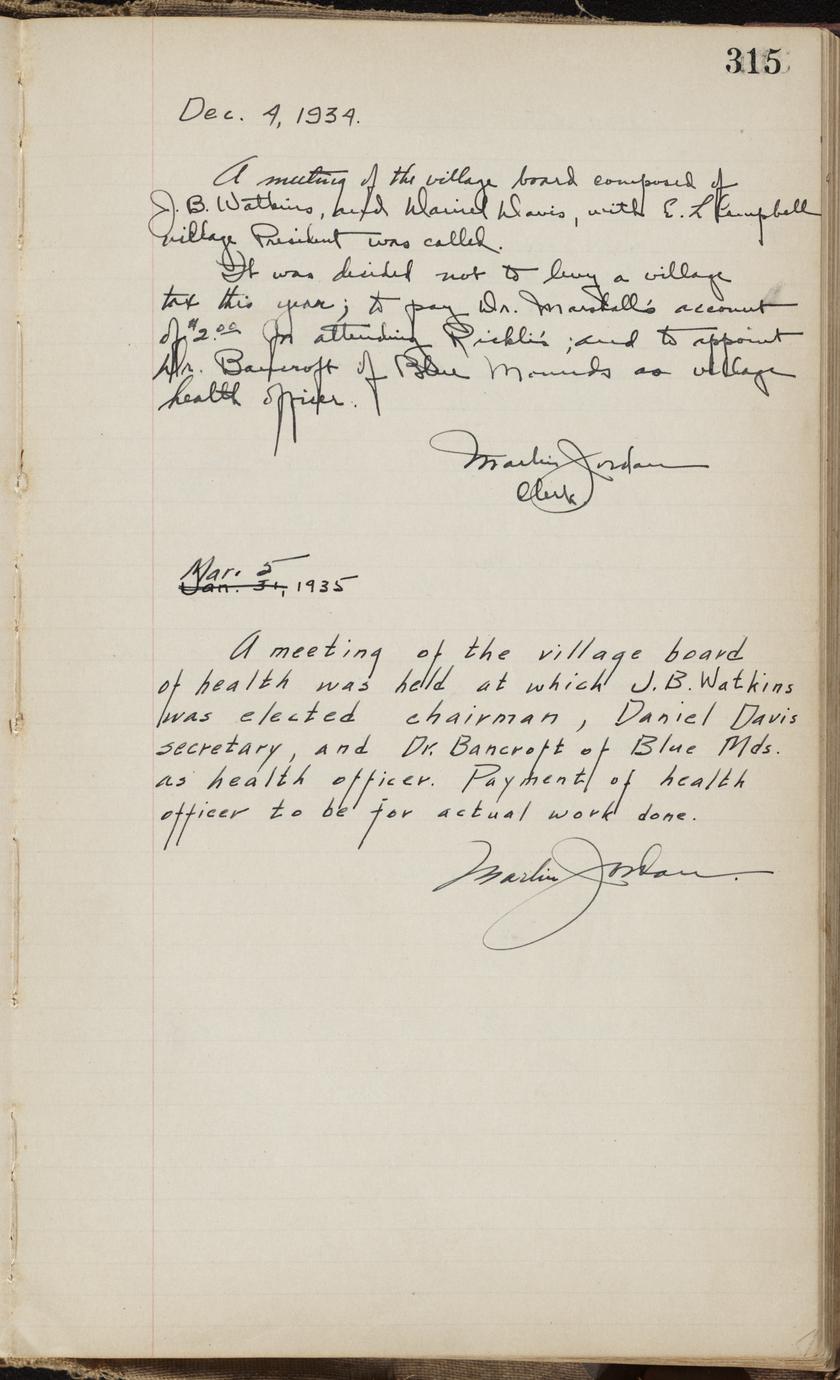 315
Dec. 4, 1934.
A meeting of the village board composed of
J. B. Watkins, and Daniel Davis, with E. L. Kempbell
village President was called.
It was decided not to levy a village
tax this year; to pay Dr. Marshall's account
of $2.00 for attending Rickli's ; and to appoint
Dr. Bancroft of Blue Mounds as village
health officer.
Marlin Jordan
Clerk.
Mar. 5
Jan. 31, 1935
A meeting of the village board
of health was held at which J.B. Watkins
was elected chairman, Daniel Davis
secretary, and Dr. Bancroft of Blue Mds.
as health officer. Payment of health
officer to be for actual work done.
Marlin Jordan.